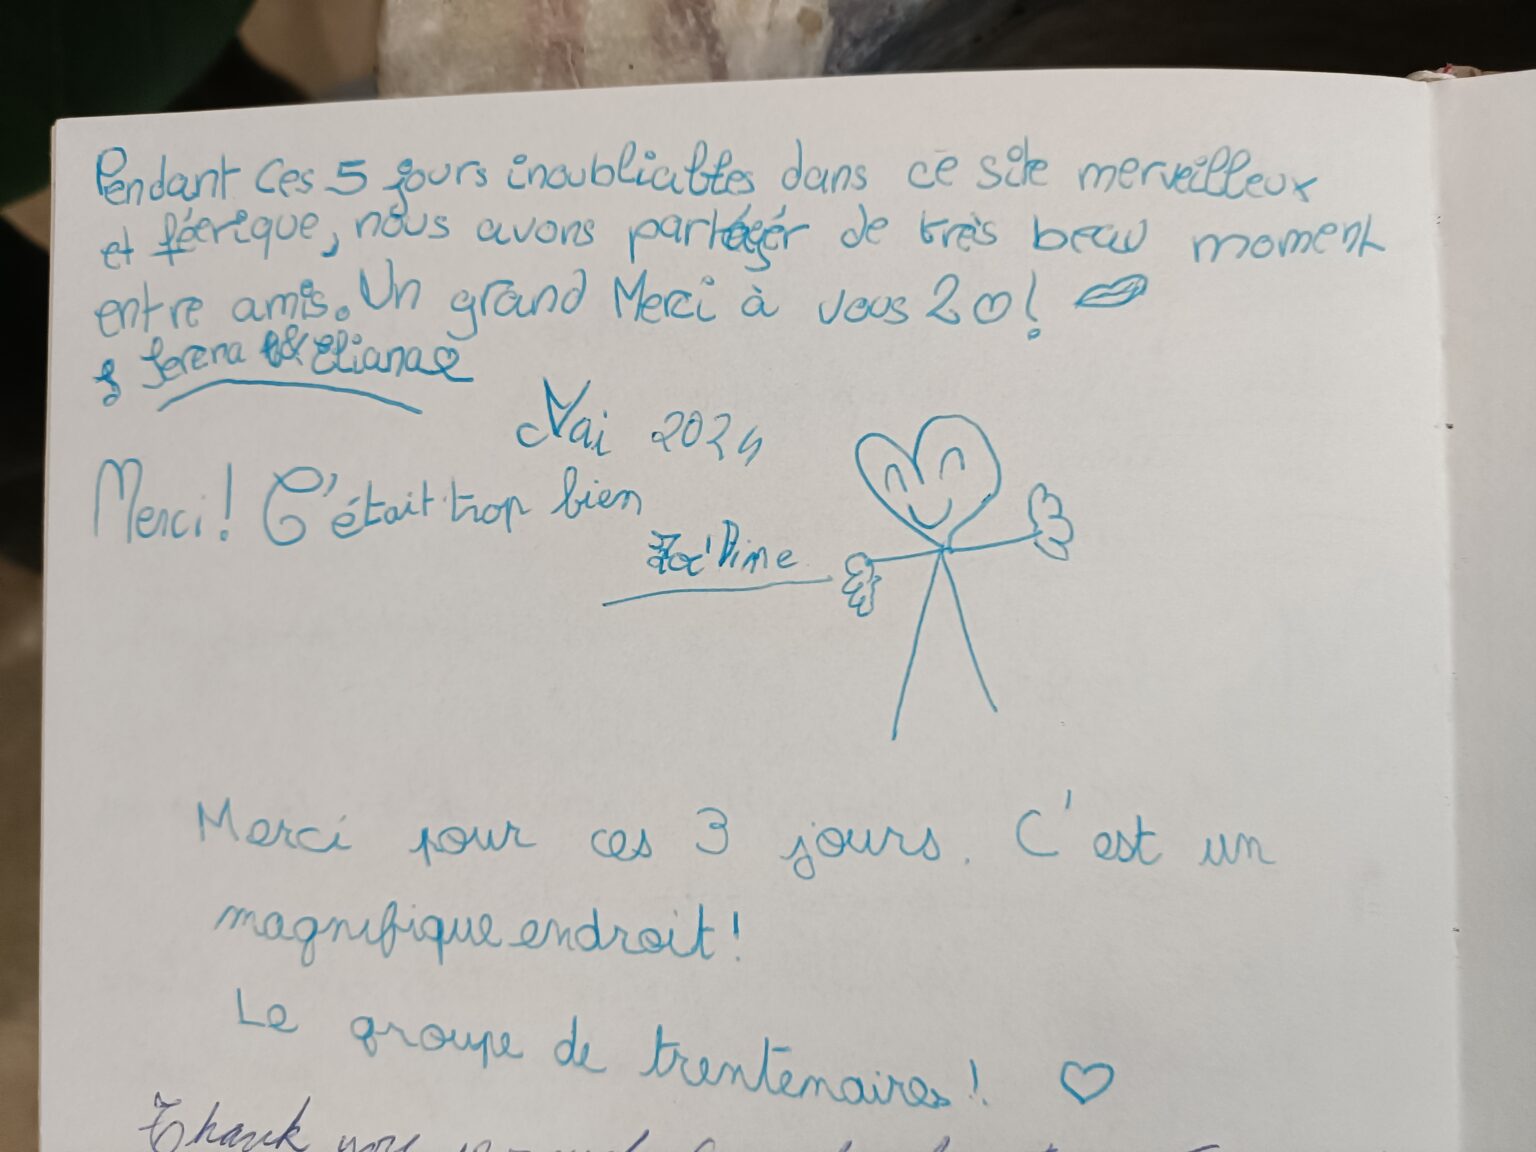 Pendant ces 5 jours inoubliables dans ce site merveilleux
et féerique, nous avons partagér de très beau moment
entre amis. Un grand Merci à vous 20!
Serena & Eliana
Mai 2024
Merci! C'était trop bien
Merci pour ces 3 jours. C'est un
magnifique endroit!
Le groupe de trentenaires! ♡
Thank you